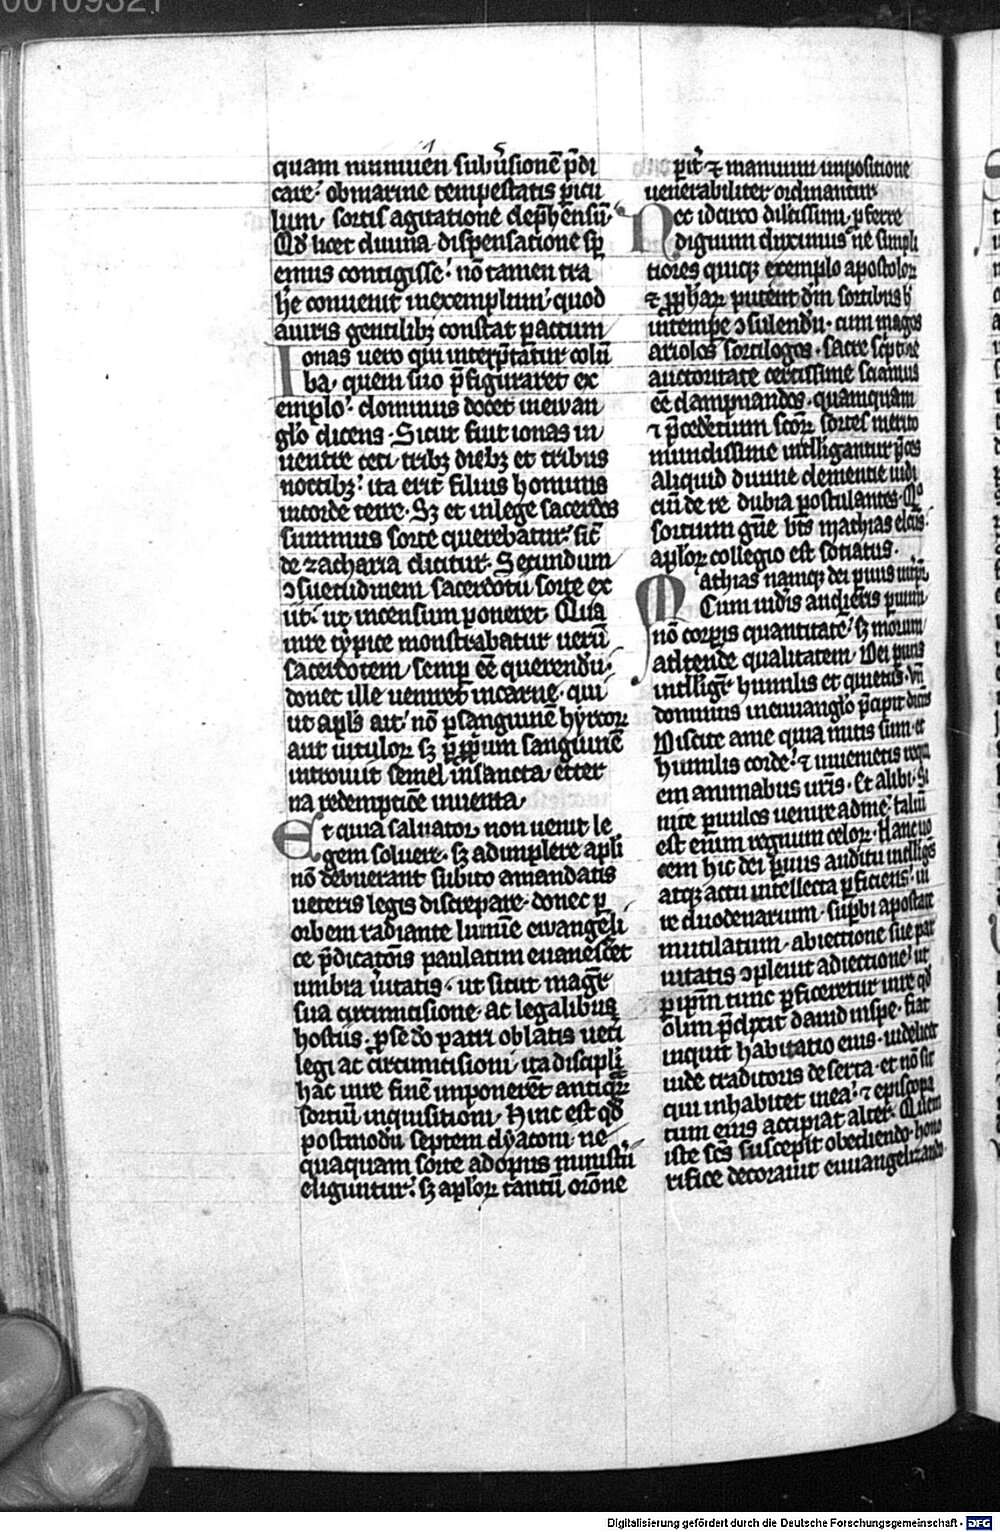 quam niniuen subũsionē p̄di
care. obmarine tempestatis picu
lum sortis agitatione dep̄hensũ.
Qd̄ licet diuina dispensatione sp̄
emus contigisse. nō tamen tra
hē conuenit inexemplum quod
auiris gentilibꝫ constat pactum
Ionas uero qui interp̄tatur colũ
ba. quem suo p̄figuraret ex
emplo. dominus docet inewan
glō dicens. Sicut fuit ionas in
uentre ceti tribꝫ diebꝫ et tribus
noctibꝫ. ita erit filius hominis
incorde terre. Sꝫ et inlege sacerdos
summus sorte querebatur. sic̄
de zacharia dicitur. Secundum
ꝯsuetudinem sacerdotũ sorte ex
iit. ut incensum poneret. Qua
iure typice monstrabatur uerũ
sacerdotem semp ēē querendũ.
donec ille ueniret incarne. qui
ut apls̄ ait. nō psanguinē hyrcoꝝ
aut uituloꝝ sꝫ p pp̄um sanguinē
introiuit semel in sancta etter
na redemptiōe inuenta.
Et quia saluator non uenit le
gem soluere. sꝫ adimplere apli
nō debuerant subito amandatis
ueteris legis discrepare. donec p
orbem radiante lumīe ewangeli
ce p̄dicatōis paulatim euanescēt
umbra ũitatis. ut sicut magr̄
sua circumcisione. ac legalibus
hostiis. pse dō patri oblatis ueti
legi ac circumcisioni. ita discipli
hac iure finē imponerēt antiqꝝ
sortiũ inquisitioni. Hinc est qd̄
postmodũ septem dyaconi. ne
quaquam sorte adopus ministii
eliguntur. sꝫ apl̄oꝝ tantũ orōne
pit̄ ⁊ manuum impositione
uenerabiliter ordinantur.
Nec idcirco dilc̄issimi. pferre
dignum duximus ne simpli
tiores quiqꝫ exemplo apostoloꝝ
⁊ pp̄haꝝ putent dm̄ sortibus h̄
intempe ꝯsulendũ. cum magos
ariolos sortilogos. sacre scpture
auctoritate certissime sciamus
ēē dampnandos. quamquam
⁊ p̄cedētium scōꝝ sortes merito
mundissime intelligantur p̄ces
aliquid diuine clementie iudi
ciũ de re dubia postulantes. Qͦ
sortium gn̄e bt̄s mathias elcūs.
apl̄oꝝ collegio est sotiatus.
Mathias namqꝫ dei puus interp̄.
Cum uidis audieris puum
nō corpis quantitatē. sꝫ morum
adtende qualitatem. Dei puus
intelligr̄ humilis et quietus. vn̄
dominus ineuuangl̄o p̄cipit dicēs
Discite ame quia mitis sum et
humilis corde. ⁊ inuenietis requi
em animabus ur̄is. Et alibi. Si
nite puulos uenire adme. taliũ
est enim regnum celoꝝ. Hanc uo
cem hic dei puus auditu intelligēs
atqꝫ actu intellecta pficiens. iu
re duodenarium. supbi apostate
mutilatum. abiectione sue par
uitatis ꝯpleuit adiectione. ut
pipm̄ tunc pficeretur iure qd̄
olim p̄dixit dauid inspe. fiat
inquit habitatio eius. uidelicet
iude traditoris deserta. et nō sit
qui inhabitet inea. ⁊ episcopa
tum eius accipiat alter. Quem
iste sc̄s suscepit obediendo. hono
rifice decorauit euuangelizando
Digitalisierung gefördert durch die Deutsche Forschungsgemeinschaft - DFG